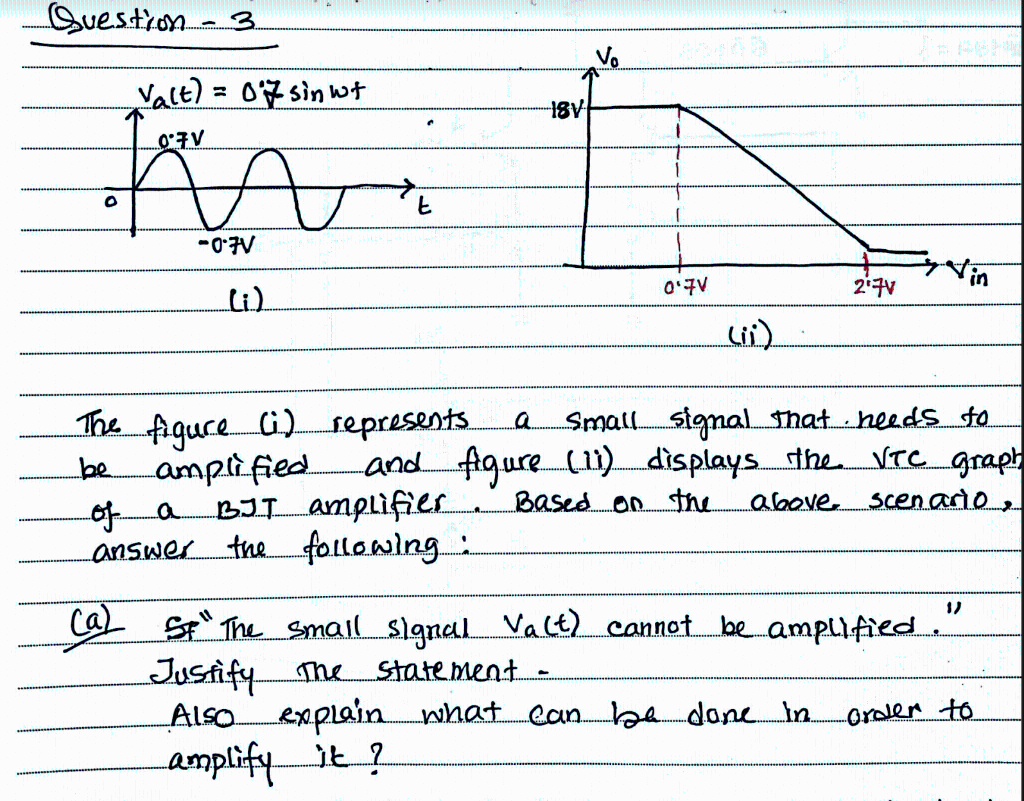 Question - 3
Va(t) = 0.7 sin wt
0.7V
0
t
-0.7V
(i)
Vo
18V
0.7V
2.7V
Vin
(ii)
The figure (i) represents a small signal that needs to
be amplified and figure (ii) displays the VTC graph
of a BJT amplifier. Based on the above scenario,
answer the following:
(a) "The small signal Va(t) cannot be amplified."
Justify the statement -
Also explain what can be done in order to
amplify it?